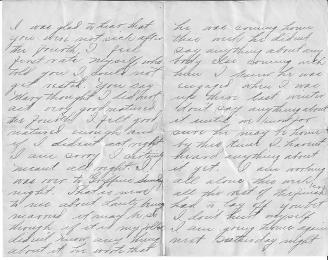 I was glad to hear that
you were not sick after
the fourth, I feel
first rate myself, who
told you I could not
get rested. You say
Mary thought I did not
act very good natured
the fourth I felt good
natured enough and
if I did not act right
I am sorry I certainly
meant all right. I
was over to
night. That is news
to me about
married it may be so
though if it is
didn't know any thing
about it he wrote that
he was coming home
this week he didn't
say anything about any
body else coming with
him I knew he was
engaged when I was
up there last winter
don't say anything about
it until we know for
sure he may be home
by this time I haven't
heard anything about
it yet. I am working
all alone this week
all the rest of the
had a lay off
I don't hurt myself
I am going home again
next Saturday night